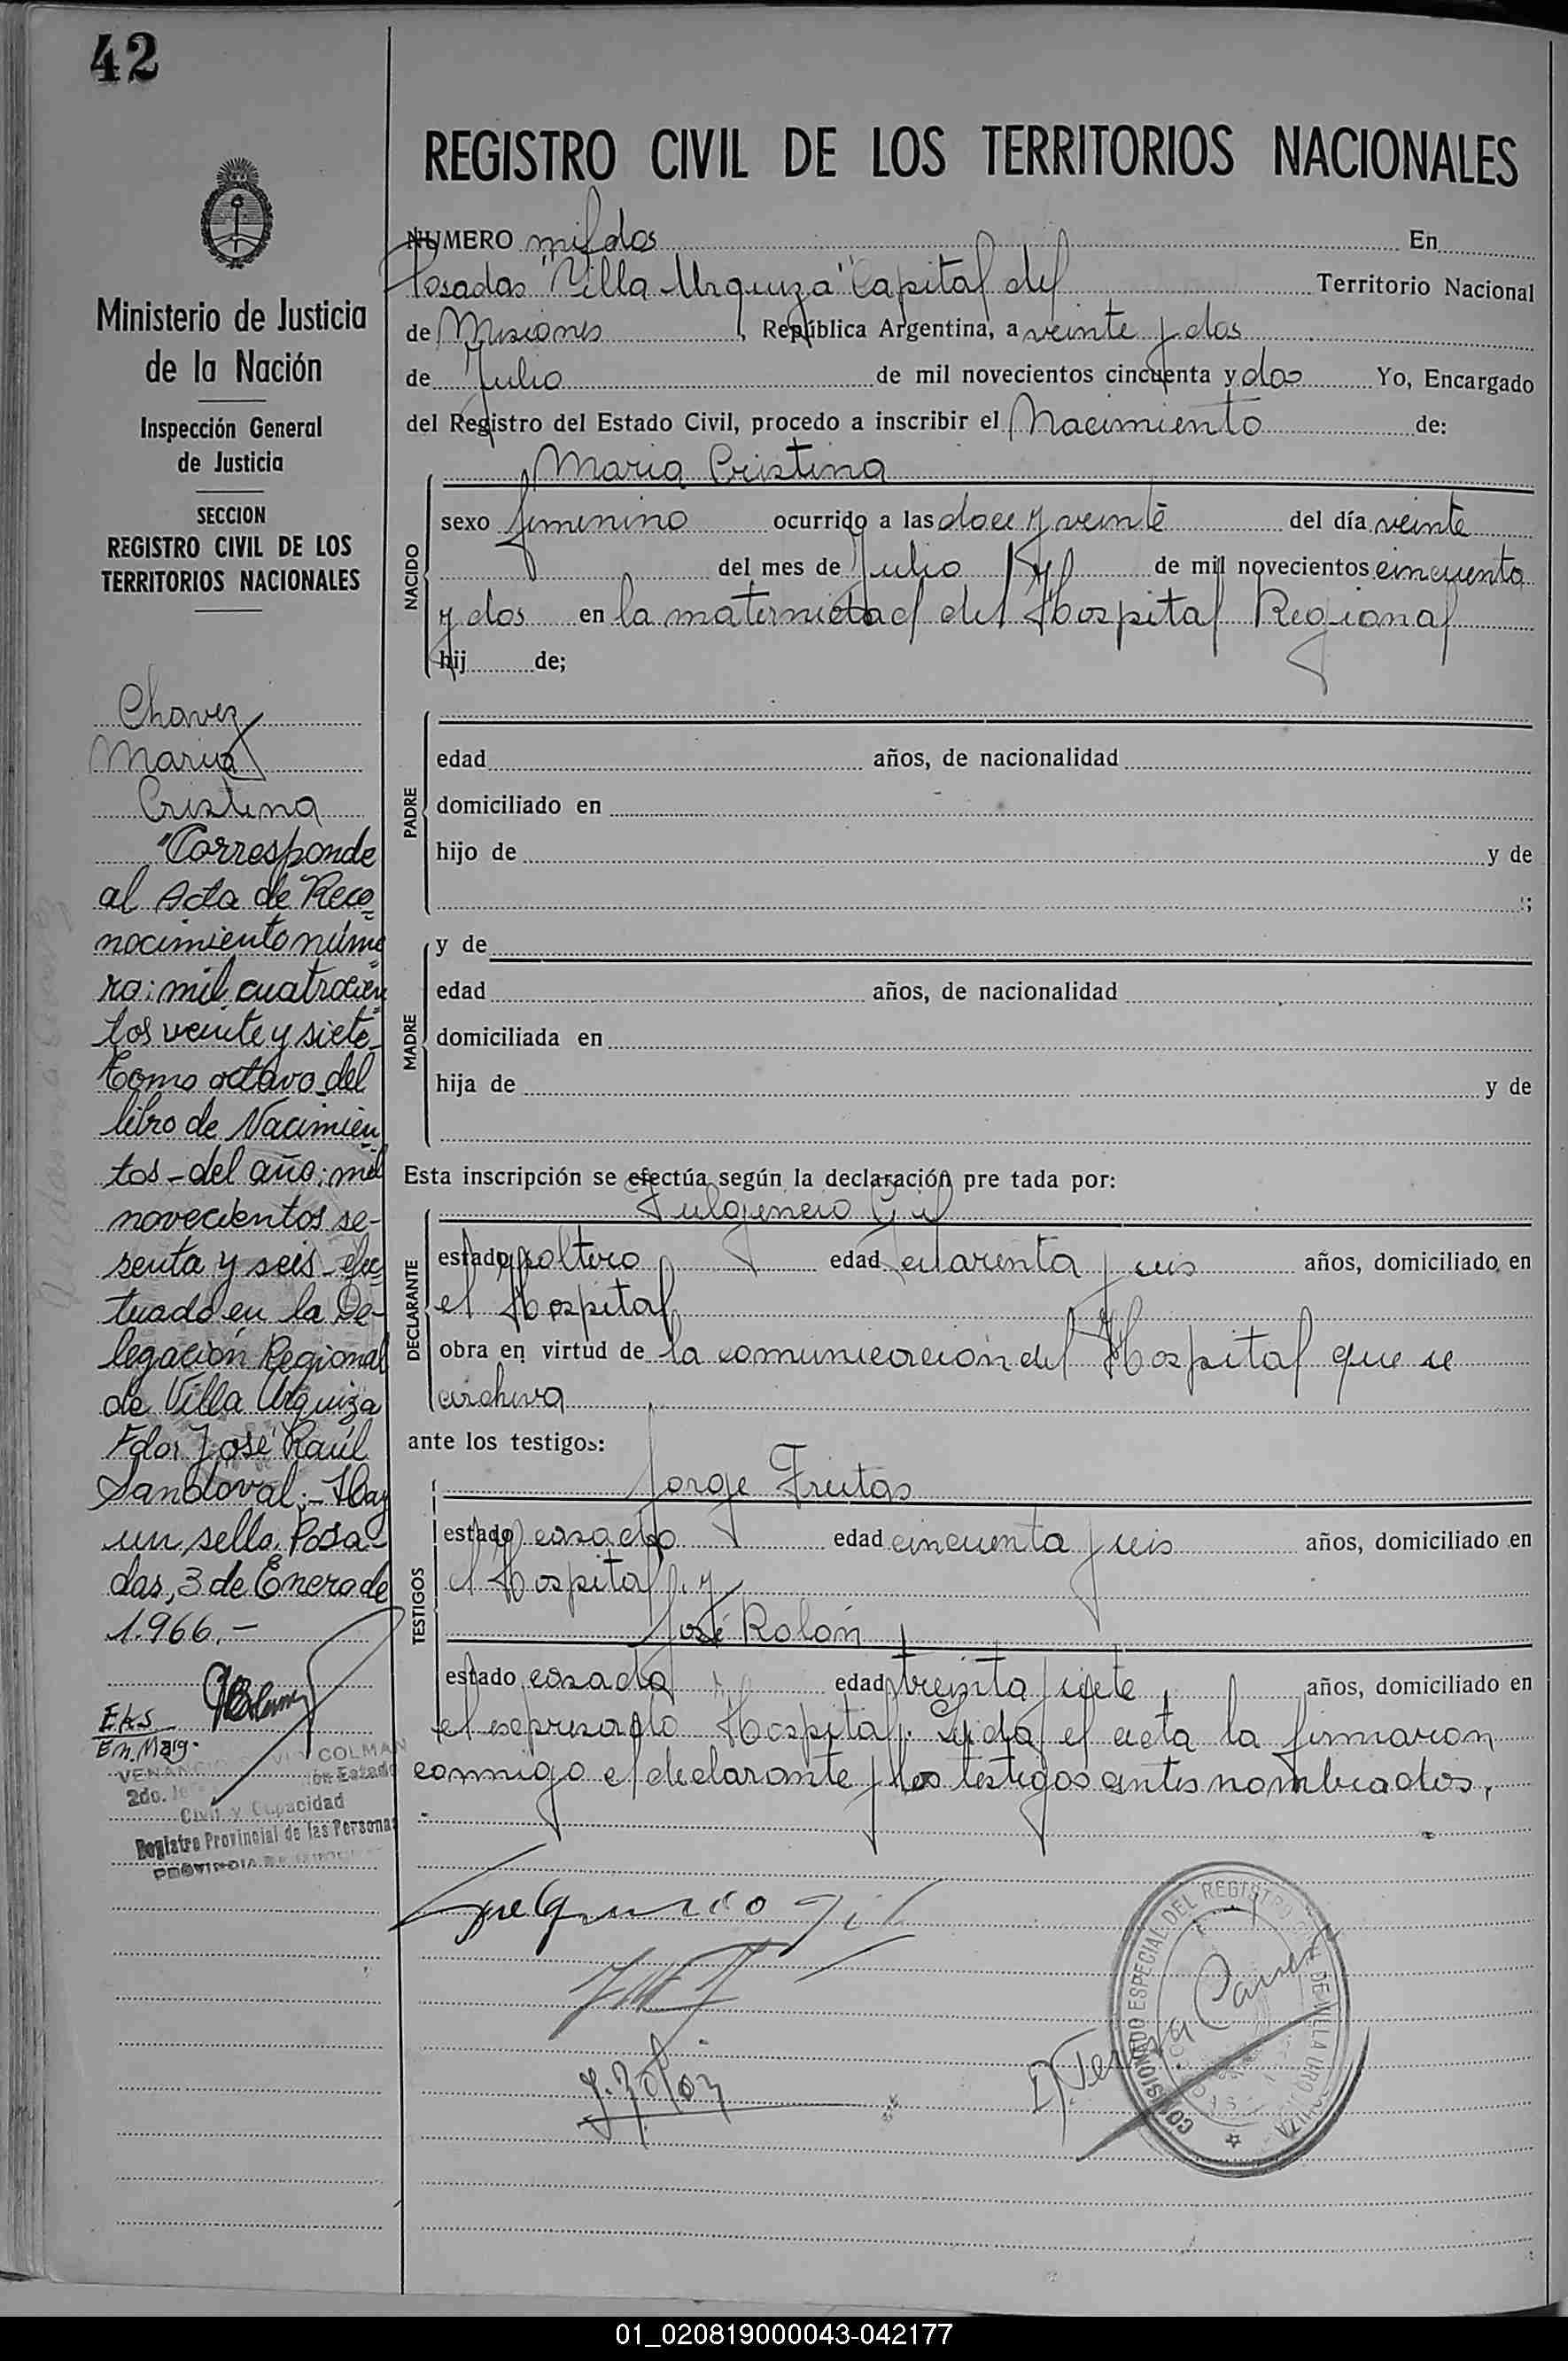 42
REGISTRO CIVIL DE LOS TERRITORIOS NACIONALES
Ministerio de Justicia
de la Nación
Inspección General
de Justicia
SECCION
REGISTRO CIVIL DE LOS
TERRITORIOS NACIONALES
Chavez
Maria
Cristina
"Corresponde
al Acta de Reco=
nocimiento núme=
ro: mil cuatrocien=
tos veinte y siete-
Tomo octavo del
libro de Nacimien=
tos - del año: mil
novecientos se-
senta y seis - efec
tuado en la De-
legación Regional
de Villa Urquiza
Fdo: José Raúl
Sandoval. - Hay
un sello. Posa-
das, 3 de Enero de
1.966. -
En. Marg.
COLMAN
2do.
Civil y Capacidad
Registro Provincial de las Personas
NUMERO mil dos En
Posadas "Villa Urquiza" Capital del Territorio Nacional
de Misiones, República Argentina, a veinte y dos
de Julio de mil novecientos cincuenta y dos Yo, Encargado
del Registro del Estado Civil, procedo a inscribir el Nacimiento de:
Maria Cristina
NACIDO
sexo femenino ocurrido a las doce y veinte del día veinte
del mes de Julio de mil novecientos cincuenta
y dos en la maternidad del Hospital Regional
hij de;
PADRE
edad años, de nacionalidad
domiciliado en
hijo de y de
;
MADRE
y de
edad años, de nacionalidad
domiciliada en
hija de y de
Esta inscripción se efectúa según la declaración pre tada por:
Fulgencio Gil
DECLARANTE
estado soltero edad cuarenta y seis años, domiciliado en
el Hospital
obra en virtud de la comunicación del Hospital que se
archiva
ante los testigos:
Jorge Freitas
TESTIGOS
estado casado edad cincuenta y seis años, domiciliado en
el Hospital y
José Rolón
estado casado edad treinta y siete años, domiciliado en
el expresado Hospital. Leida el acta la firmaron
conmigo el declarante y los testigos antes nombrados.
Fulgencio Gil
J. Rolón
COMISIONADO ESPECIAL DEL REGISTRO CIVIL DE VILLA URQUIZA
01_020819000043-042177